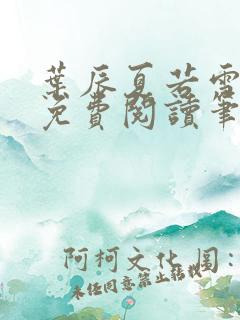 葉辰夏若雪
免費閱讀筆
阿柯文化 图:
未经同意禁止转载